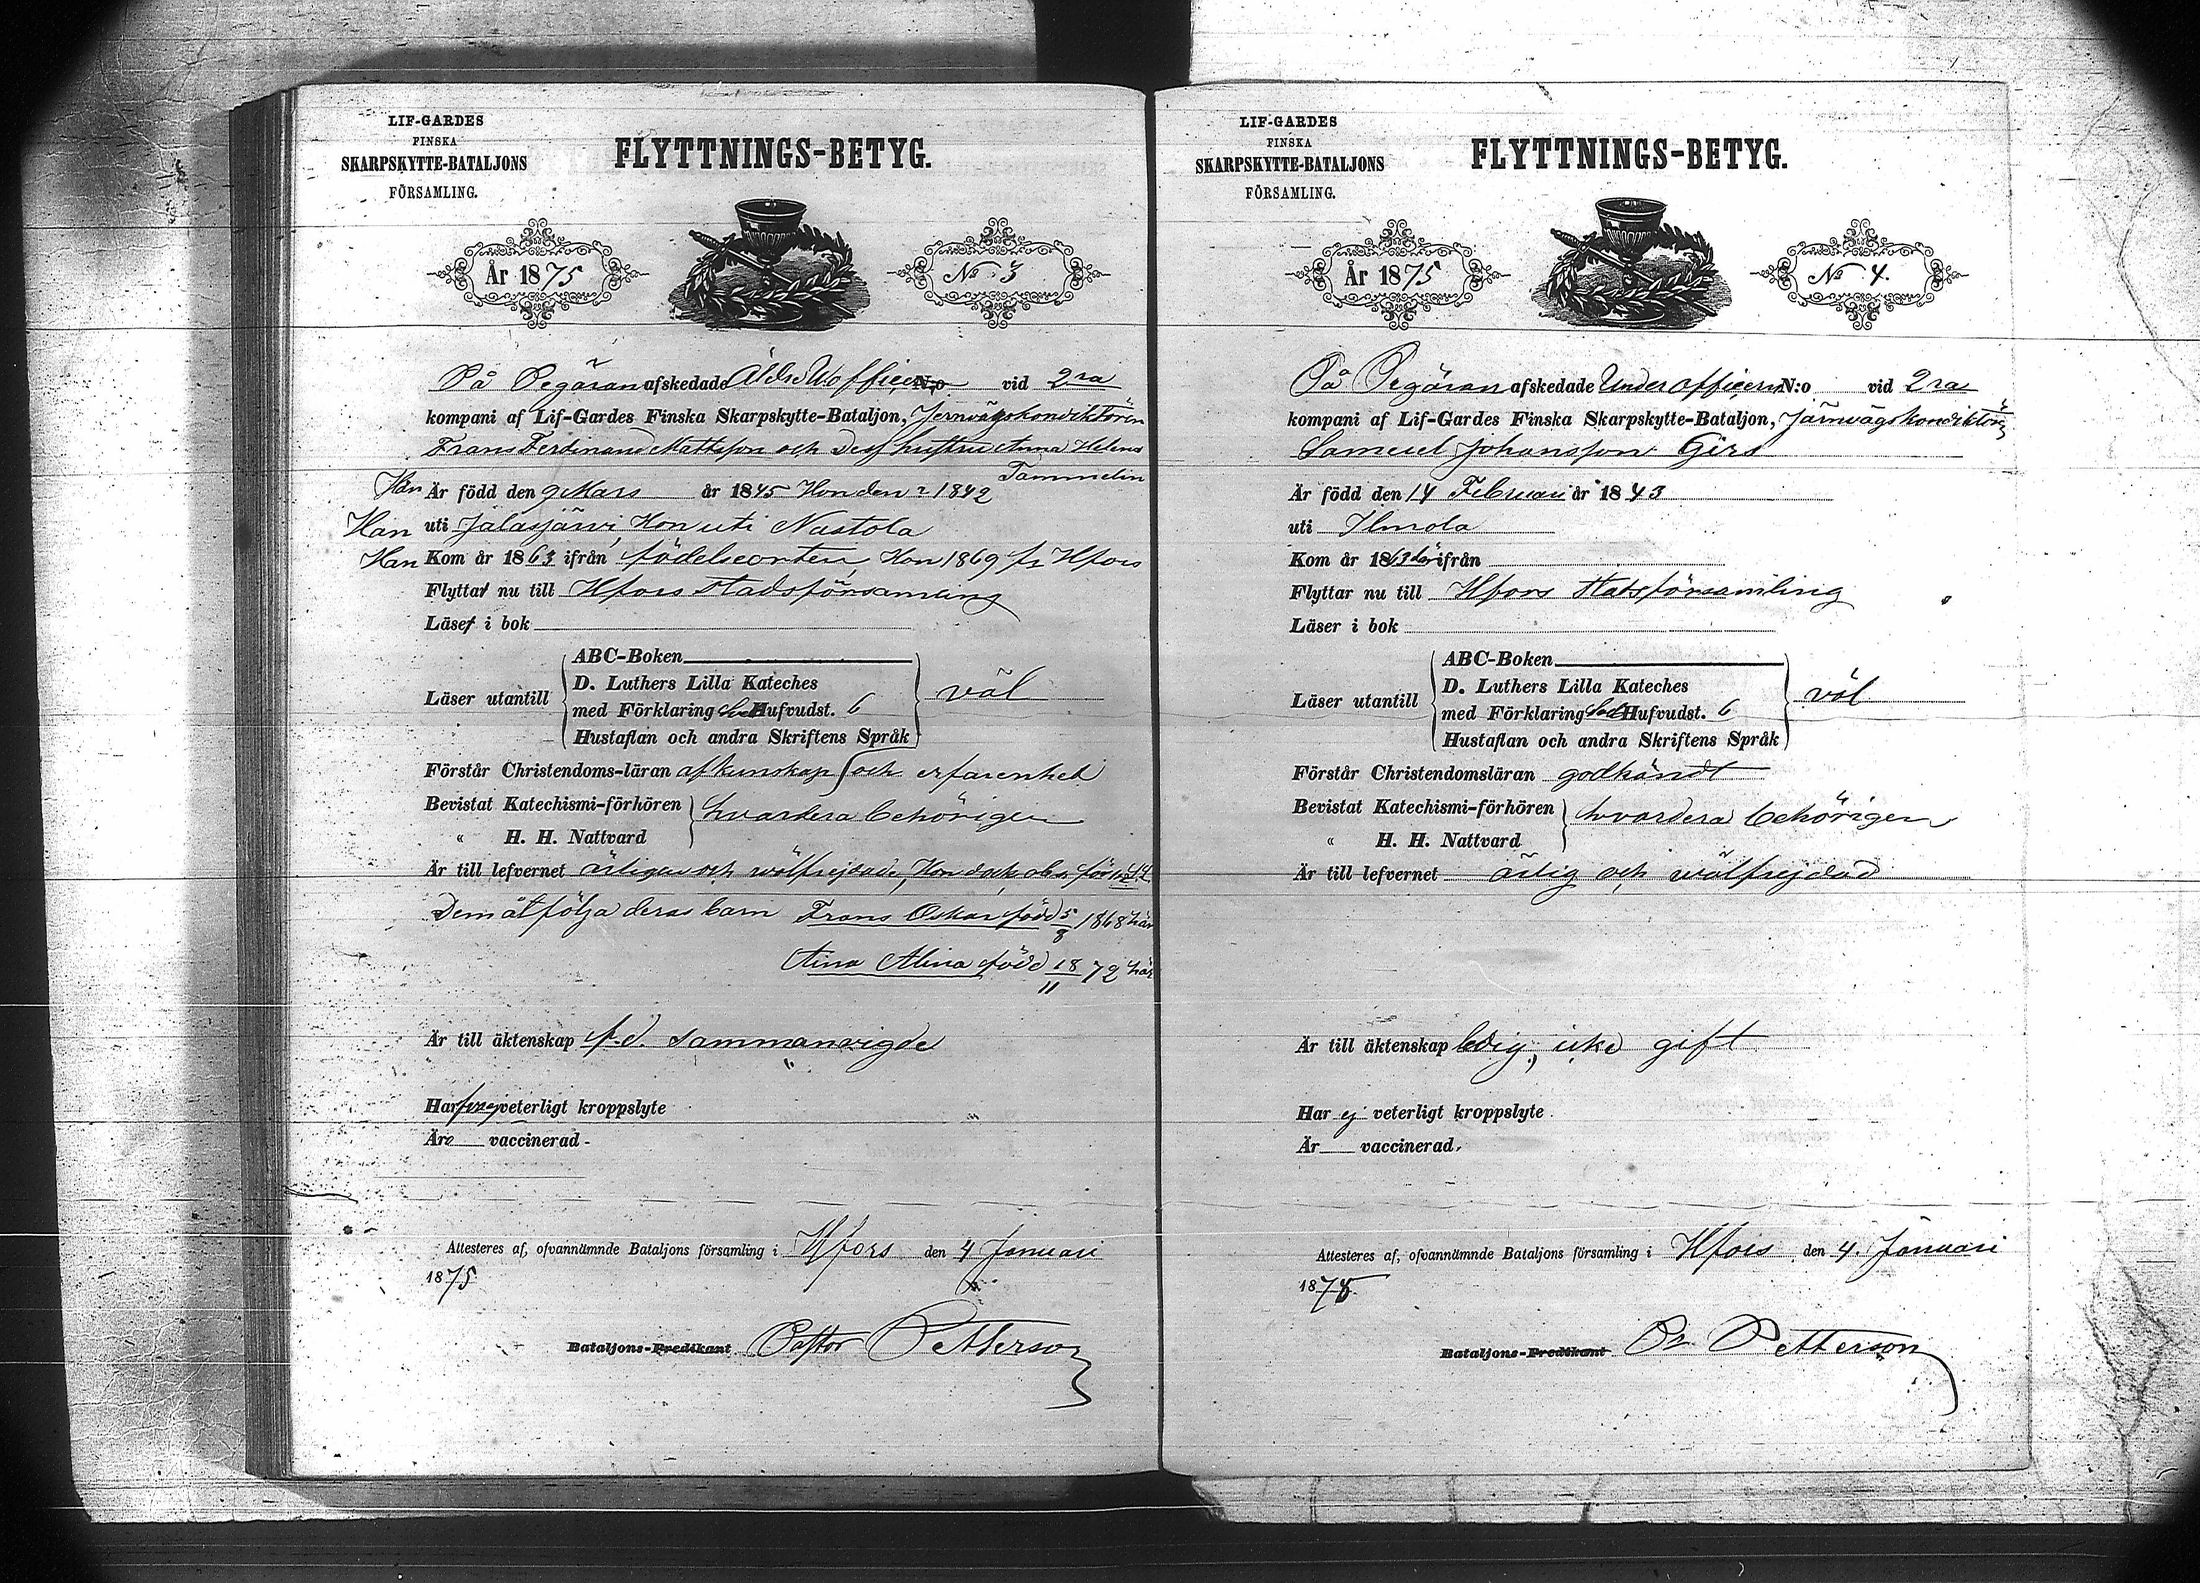 LIF-GARDES
FINSKA
SKARPSKYTTE-BATALJONS
FÖRSAMLING.
FLYTTNINGS-BETYG.
År 1875
No 3
På Begäran afskedade Äldre Uofficern N:o vid 2ra
kompani af Lif-Gardes Finska Skarpskytte-Bataljon, Jernvägskonduktören
Frans Ferdinand Mattsson och dess hustru Anna Helena
Tammelin
Han Är född den 9 Mars år 1845 Hon den ? 1842
Han uti Jalasjärvi, Hon uti Nastola
Han Kom år 1863 ifrån födelseorten, Hon 1869 fr Hfors
Flyttar nu till Hfors stadsförsamling
Läser i bok
ABC-Boken
D. Luthers Lilla Kateches
Läser utantill
väl
med Förklaring Hufvudst. 6
Hustaflan och andra Skriftens Språk
Förstår Christendoms-läran af kunskap och erfarenhet
Bevistat Katechismi-förhören
hvardera behörigen
" H. H. Nattvard
Är till lefvernet ärliga och wälfrejdade, Hon dock abs. för
Dem åtfölja deras barn Frans Oskar född 5/8 1868 här
Aina Alina född 18/11 72 här
Är till äktenskap f.d. sammanvigde
Har veterligt kroppslyte
Äro vaccinerad.
Attesteres af, ofvannämnde Bataljons församling i Hfors den 4 Januari
1875
Bataljons-Predikant Pastor Petterson
LIF-GARDES
FINSKA
SKARPSKYTTE-BATALJONS
FÖRSAMLING.
FLYTTNINGS-BETYG.
År 1875
No 4.
På Begäran afskedade Underofficern N:o vid 2ra
kompani af Lif-Gardes Finska Skarpskytte-Bataljon, Järnvägskonduktör
Samuel Johansson Girs
Är född den 14 Februari år 1843
uti Ilmola
Kom år 1863 ifrån
Flyttar nu till Hfors Stadsförsamling
Läser i bok
ABC-Boken
D. Luthers Lilla Kateches
Läser utantill
väl
med Förklaring Hufvudst. 6
Hustaflan och andra Skriftens Språk
Förstår Christendomsläran godkändt
Bevistat Katechismi-förhören
hvardera behörigen
" H. H. Nattvard
Är till lefvernet ärlig och wälfrejdad
Är till äktenskap ledig, icke gift
Har ej veterligt kroppslyte.
Är vaccinerad.
Attesteres af, ofvannämnde Bataljons församling i Hfors den 4. Januari
1875
Bataljons-Predikant Pr Petterson